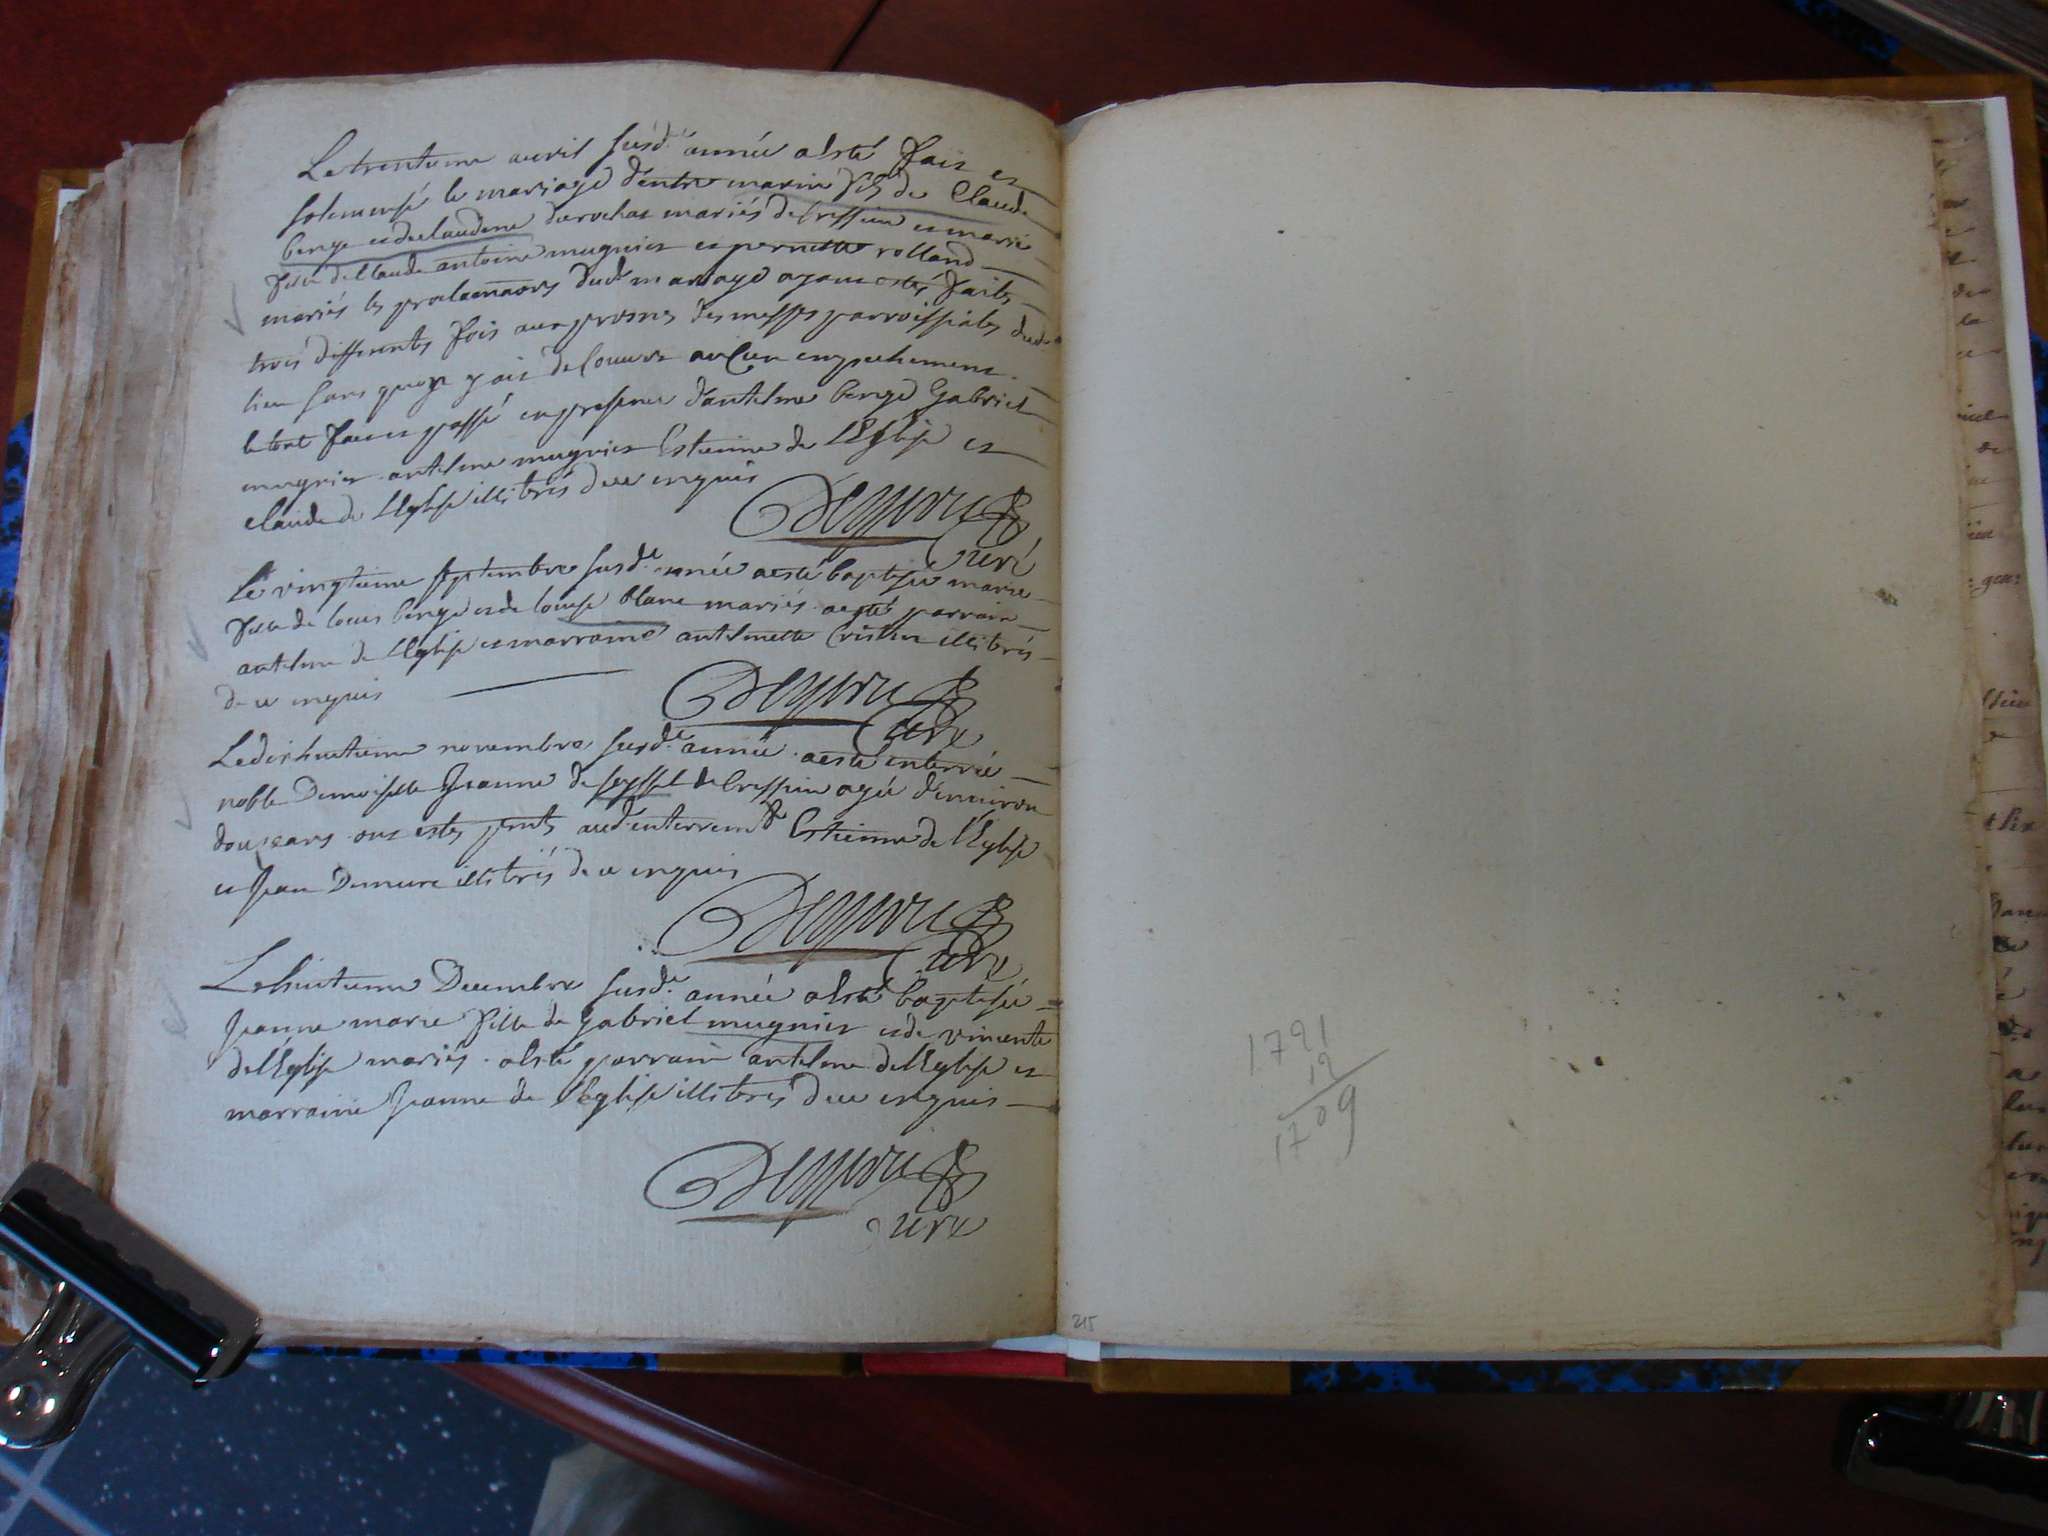 Le trentieme avril susd.^e année a esté fait et
solemnisé le mariage d'entre marin fils de Claude
berge et de claudine durochat mariés de Cressieu et marie
fille de Claude antoine mugnier et pernette rolland
mariés les proclamaons dud. mariage ayant estés faites
trois differentes fois aux prosnes des messes parroissiales dud.
lieu sans quon y ait decouvert aucun empechement
le tout fait et passé en presence d'antelme berge Gabriel
mugnier antelme mugnier Estienne de L'Eglise et
claude de L'Eglise illitrés de ce enquis
Curé
Le vingtieme septembre susd.^e année a esté baptisée marie
fille de louis berge et de louise blanc mariés a esté parrain
antelme de L'Eglise et marraine antelmette illitrés
de ce enquis
Curé
Le dixhuitieme novembre susd.^e année a esté enterrée
noble Demoiselle Jeanne de seyssel de Cressieu agée d'environ
douze ans ont estés pnts aud. enterremt Estienne de l'Eglise
et Jean illitrés de ce enquis
Curé
Le huitieme Decembre susd.^e année a esté baptisée
Jeanne marie fille de gabriel mugnier et de vincente
de l'Eglise mariés a esté parrain antelme de l'Eglise et
marraine Jeanne de l'Eglise illitrés de ce enquis
Curé
1791
19
1709
215